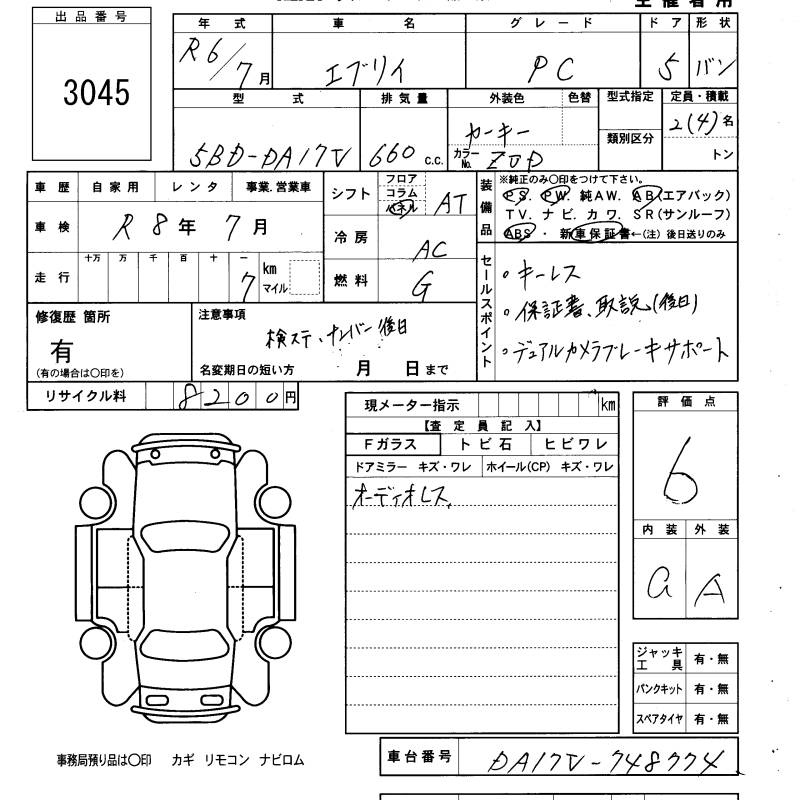 出品番号
3045
年式 車名 グレード ドア 形状
R6/7月 エブリイ PC 5 バン
型式 排気量 外装色 色替 型式指定 定員・積載
5BD-DA17V 660 c.c. カーキー 類別区分 2(4)名
カラーNo. ZVD トン
車歴 自家用 レンタ 事業.営業車
車検 R8年7月
走行 十万 万 千 百 十 一
7 km マイル
シフト フロア コラム パネル AT
冷房 AC
燃料 G
装備品 ※純正のみ〇印をつけて下さい。
PS. PW. 純AW. AB(エアバック)
TV. ナビ. カワ. SR(サンルーフ)
ABS ・ 新車保証書←(注) 後日送りのみ
セールスポイント
・キーレス
・保証書、取説(後日)
・デュアルカメラブレーキサポート
修復歴 箇所
有
(有の場合は〇印を)
注意事項
検ステ・ナンバー後日
名変期日の短い方 月 日まで
リサイクル料 8200円
現メーター指示 km
【査定員記入】
Fガラス トビ石 ヒビワレ
ドアミラー キズ・ワレ ホイール(CP) キズ・ワレ
オーディオレス
評価点
6
内装 外装
a A
ジャッキ工具 有・無
パンクキット 有・無
スペアタイヤ 有・無
事務局預り品は〇印 カギ リモコン ナビロム
車台番号 DA17V-748774